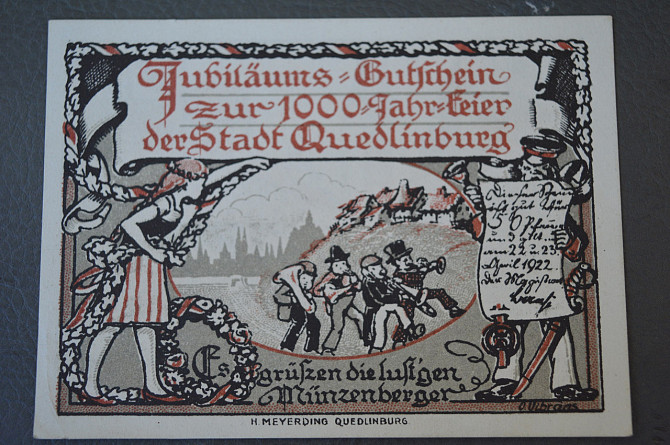 Jubiläums-Gutschein
zur 1000-Jahr-Feier
der Stadt Quedlinburg
Dieser Schein
ist gut für
50 Pfennig
und gilt
am 22 u 23.
April 1922
Der Magistrat
Es grüßen die lust'gen
Münzenberger
H. MEYERDING QUEDLINBURG